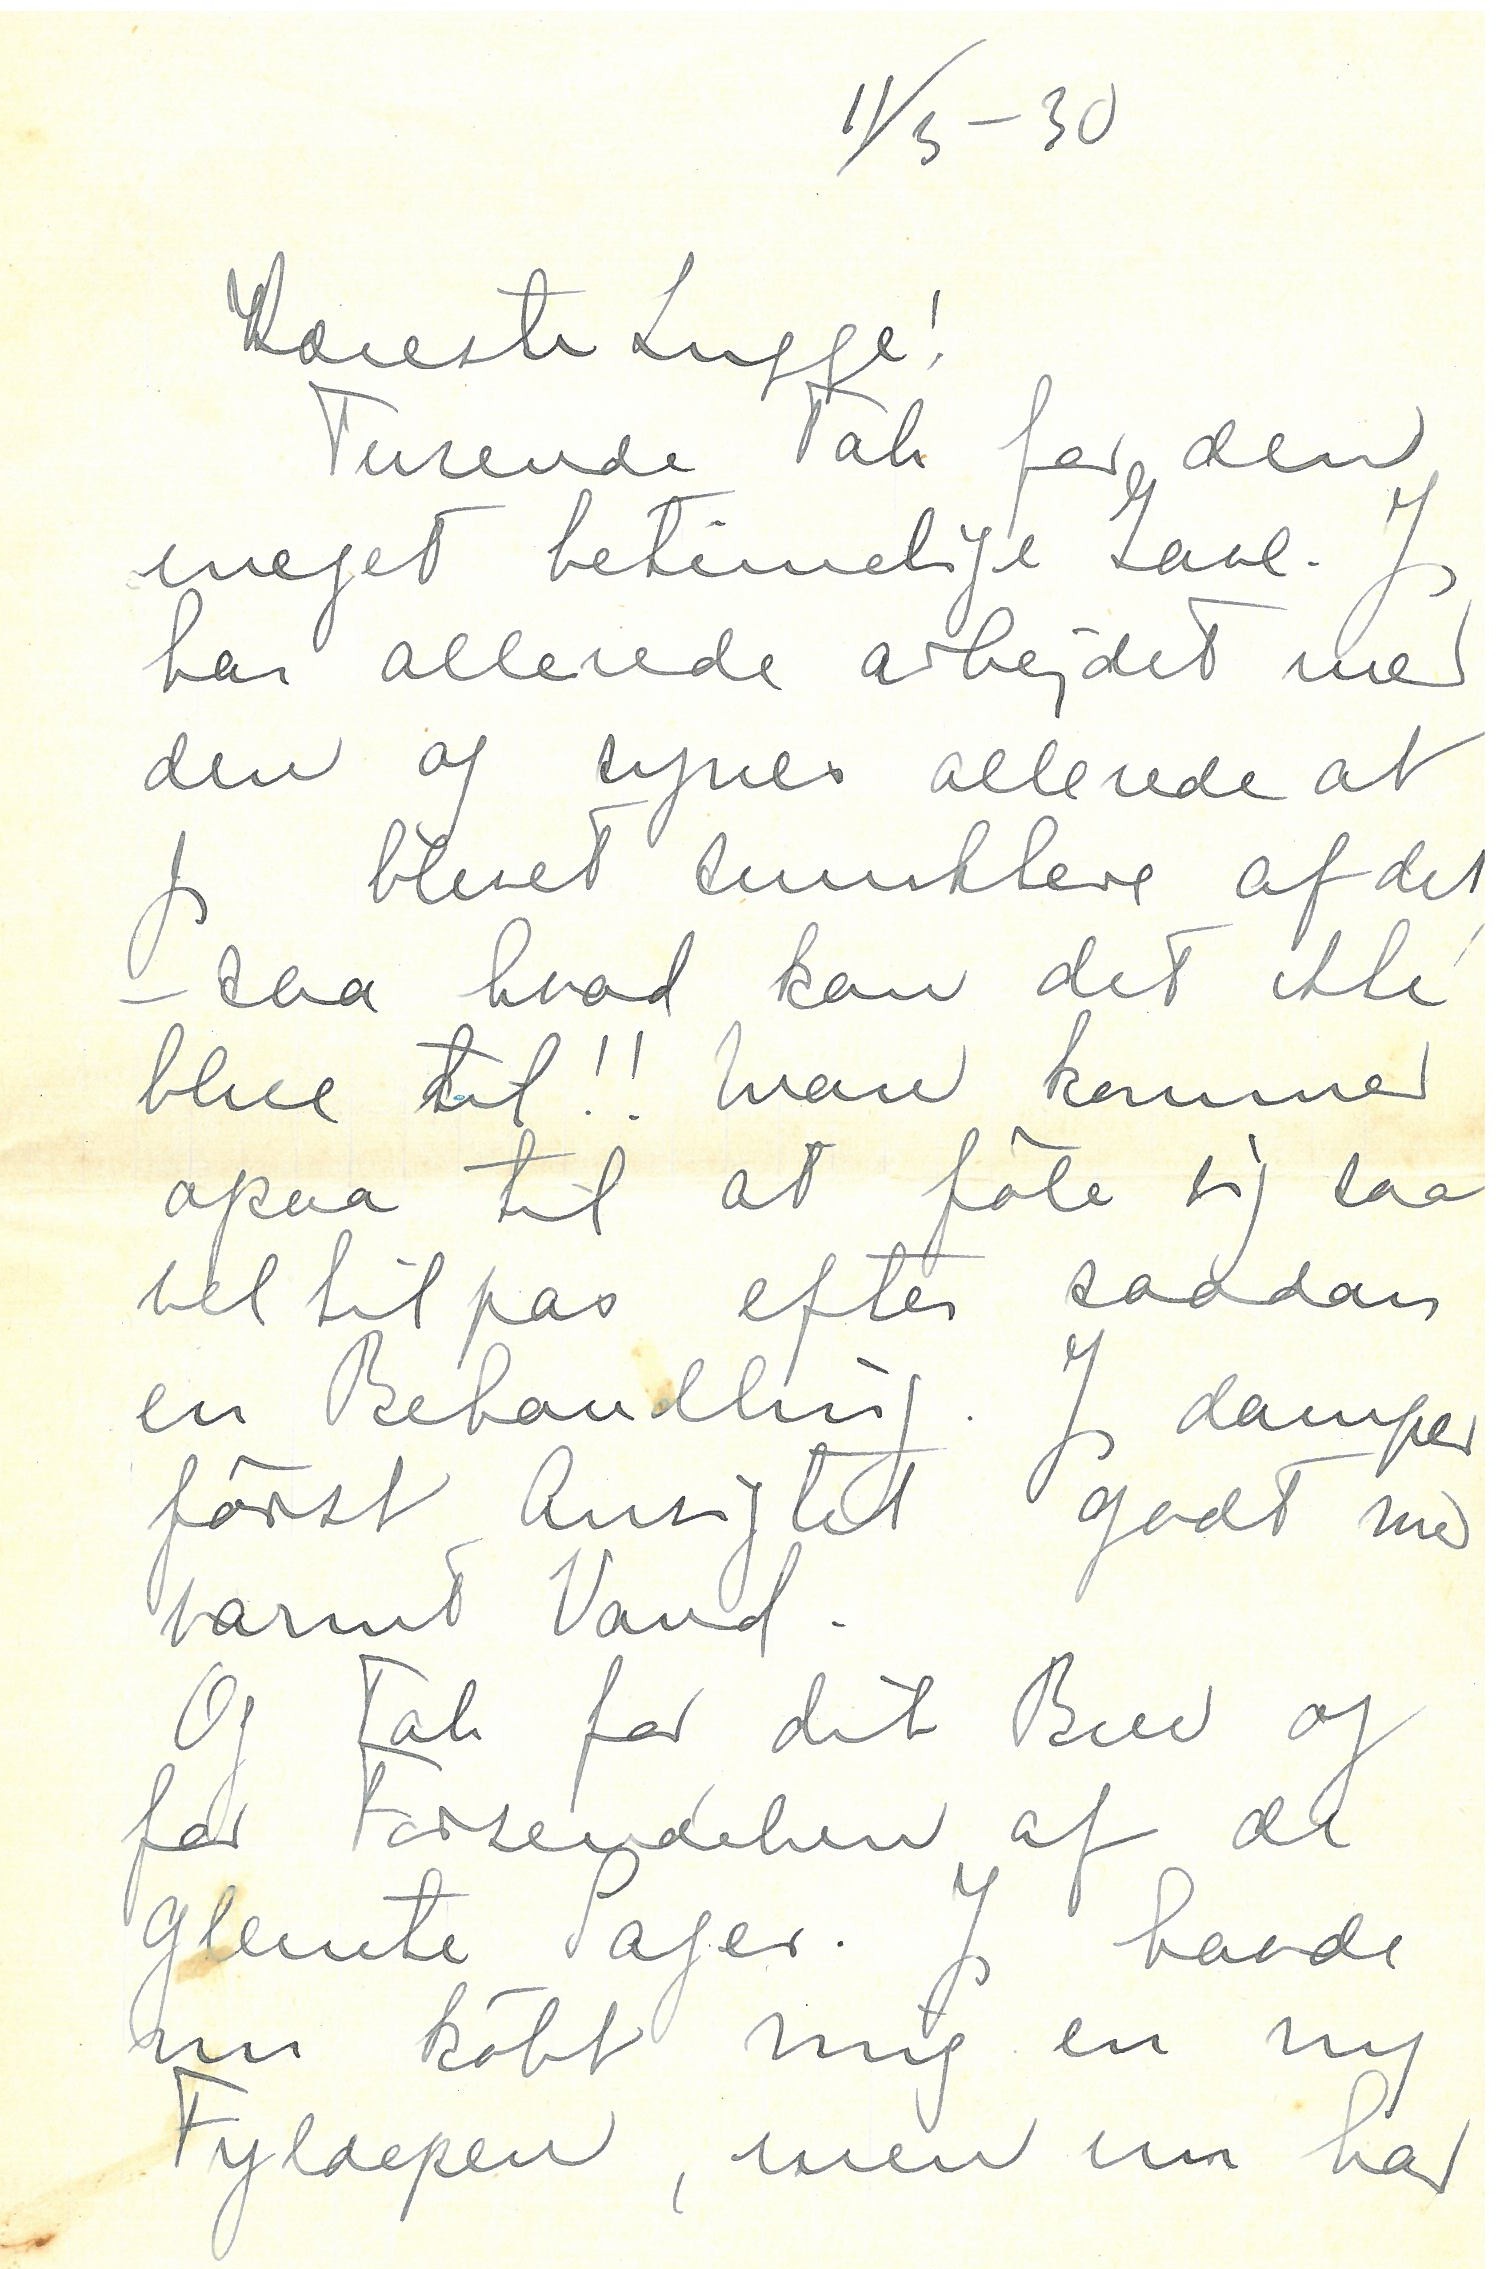 11/3 - 30
Kæreste Lugge!
Tusende Tak for den
meget betimelige Gave. Jeg
har allerede arbejdet med
den og synes allerede at
jeg blevet smukkere af det
- saa hvad kan det ikke
blive til!! Man kommer
ogsaa til at föle sig saa
vel tilpas efter saadan
en Behandling. Jeg damper
först Ansigtet godt med
varmt Vand.
Og Tak for dit Brev og
for Forsendelsen af de
glemte Sager. Jeg havde
nu köbt mig en ny
Fyldepen, men nu har